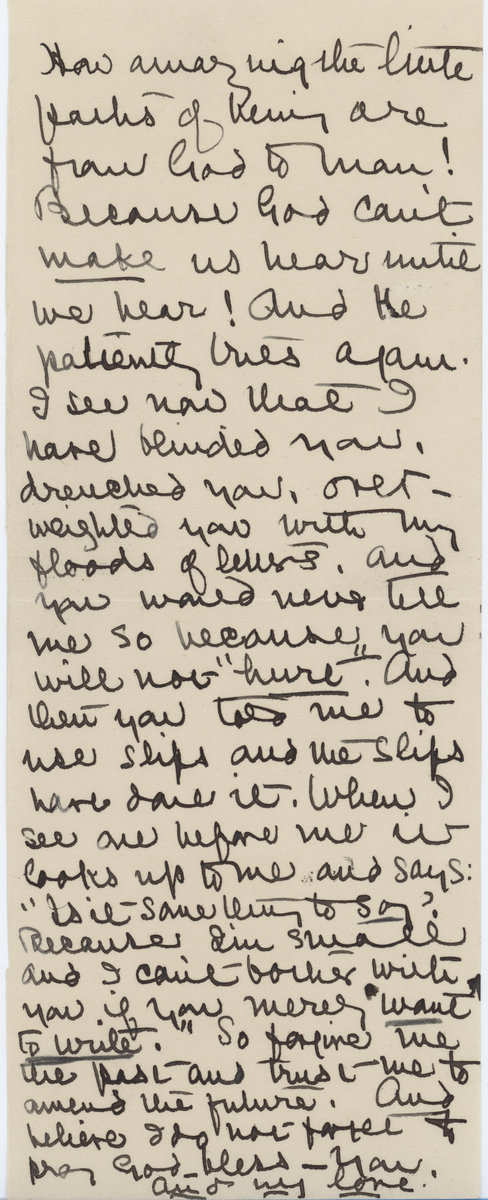 How amazing the little
paths of being are
from God to man!
Because God can't
make us hear until
we hear! And He
patiently tries again.
I see now that I
have blinded you,
drenched you, over-
weighted you with my
floods of letters. And
you would never tell
me so because you
will not "hurt". And
then you told me to
use slips and the slips
have done it. When I
see one before me it
looks up to me and says:
"Is it something to say?
Because I'm small
and I can't bother with
you if you merely "want
to write"." So forgive me
the past and trust me to
amend the future. And
believe I do not forget to
pray God-bless-You.
And my love.